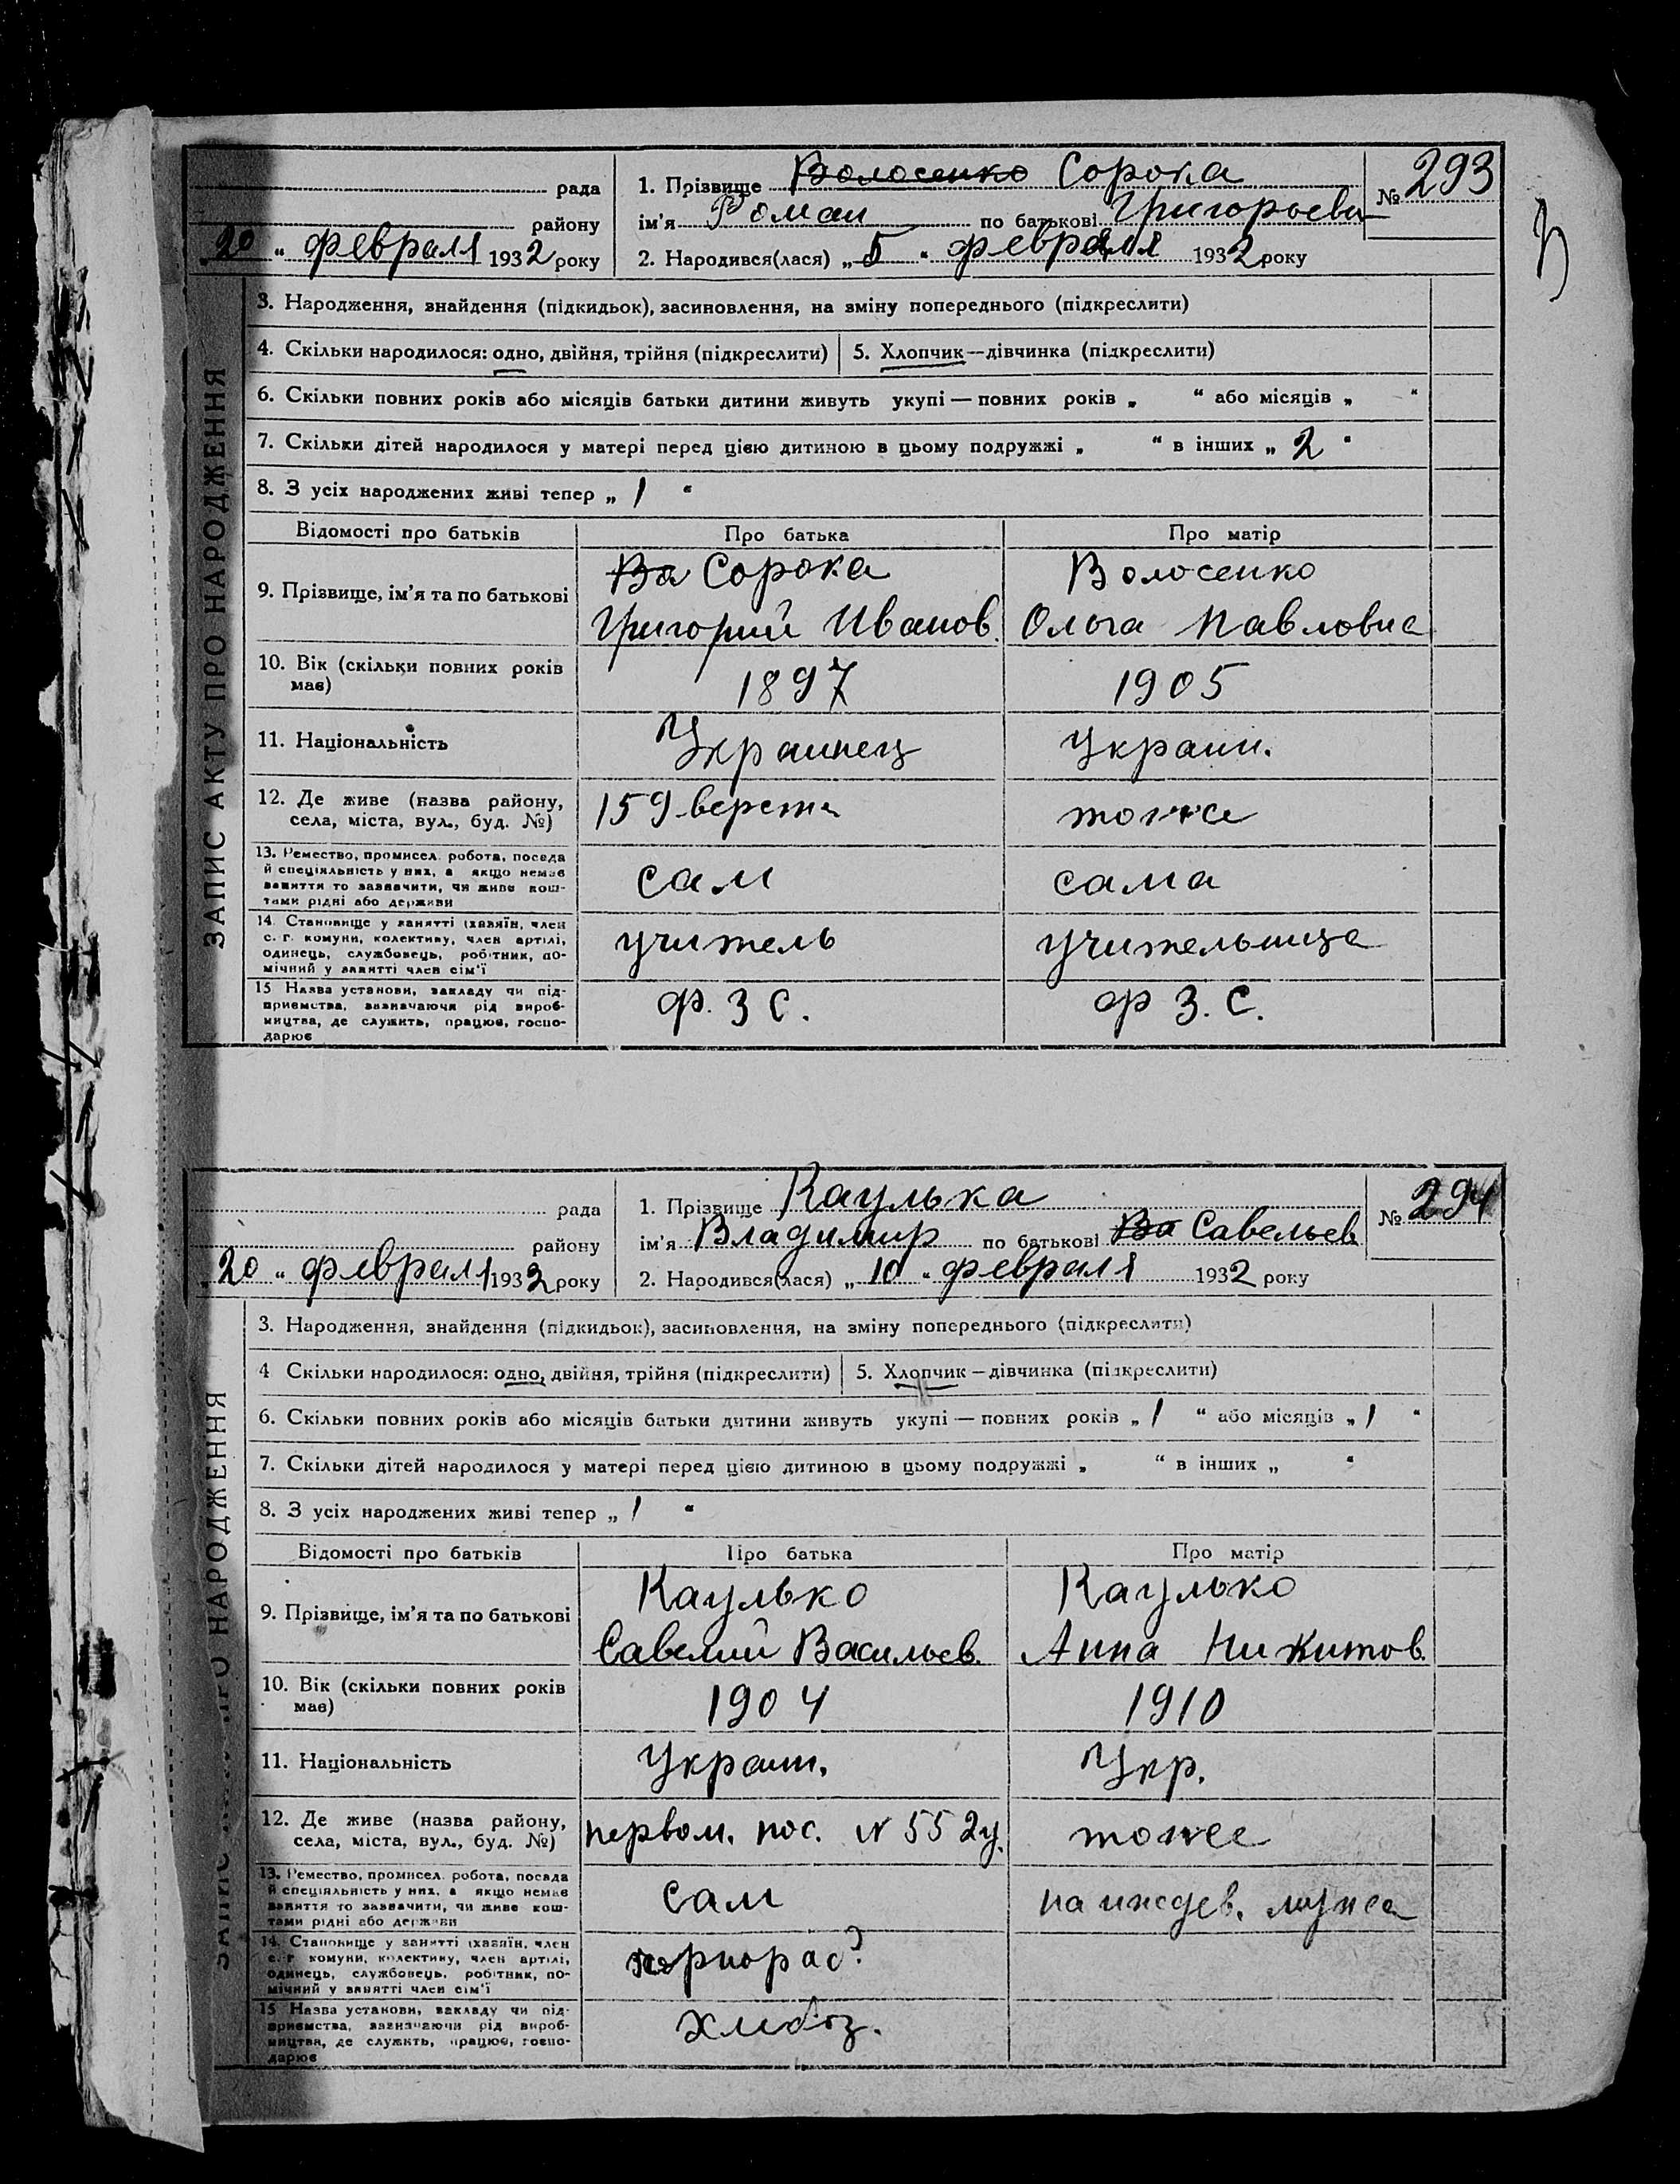 ЗАПИС АКТУ ПРО НАРОДЖЕННЯ
рада
району
„20“ февраля 1932 року
1. Прізвище Волосенко Сорока
ім'я Роман по батькові Григорьеви
2. Народився(лася) „5“ февраля 1932 року
№ 293
3. Народження, знайдення (підкидьок), засиновлення, на зміну попереднього (підкреслити)
4. Скільки народилося: одно, двійня, трійня (підкреслити)
5. Хлопчик—дівчинка (підкреслити)
6. Скільки повних років або місяців батьки дитини живуть укупі — повних років „ “ або місяців „ “
7. Скільки дітей народилося у матері перед цією дитиною в цьому подружжі „ “ в інших „ 2 “
8. З усіх народжених живі тепер „ 1 “
Відомості про батьків
Про батька
Про матір
9. Прізвище, ім'я та по батькові
Во Сорока
Григорий Иванов.
Волосенко
Ольга Павловна
10. Вік (скільки повних років має)
1897
1905
11. Національність
Украинец
Украин.
12. Де живе (назва району,
села, міста, вул., буд. №)
159 верста
тоже
13. Ремество, промисел. робота, посада
й спеціяльність у них, а якщо немає
заняття то зазначити, чи живе кош-
тами рідні або держави
сам
сама
14. Становище у занятті (хазяїн, член
с. г. комуни, колективу, член артілі,
одинець, службовець, робітник, по-
мічний у занятті член сім'ї
учитель
учительница
15 Назва установи, закладу чи під-
приємства, зазначаючи рід вироб-
ництва, де служить, працює, госпо-
дарює
Ф. З С.
Ф З. С.
ЗАПИС АКТУ ПРО НАРОДЖЕННЯ
рада
району
„20“ февраля 1932 року
1. Прізвище Каулька
ім'я Владимир по батькові Ва Савельев
2. Народився(лася) „10“ февраля 1932 року
№ 294
3. Народження, знайдення (підкидьок), засиновлення, на зміну попереднього (підкреслити)
4 Скільки народилося: одно, двійня, трійня (підкреслити)
5. Хлопчик—дівчинка (підкреслити)
6. Скільки повних років або місяців батьки дитини живуть укупі — повних років „ 1 “ або місяців „ 1 “
7. Скільки дітей народилося у матері перед цією дитиною в цьому подружжі „ “ в інших „ “
8. З усіх народжених живі тепер „ 1 “
Відомості про батьків
Про батька
Про матір
9. Прізвище, ім'я та по батькові
Каулько
Савелий Васильев.
Каулько
Анна Никитов.
10. Вік (скільки повних років має)
1904
1910
11. Національність
Украин.
Укр.
12. Де живе (назва району,
села, міста, вул., буд. №)
первом. пос. N 55 2у.
тоже
13. Ремество, промисел. робота, посада
й спеціяльність у них, а якщо немає
заняття то зазначити, чи живе кош-
тами рідні або держави
сам
на иждев. мужа
14. Становище у занятті (хазяїн, член
с. г. комуни, колективу, член артілі,
одинець, службовець, робітник, по-
мічний у занятті член сім'ї
15 Назва установи, закладу чи під-
приємства, зазначаючи рід вироб-
ництва, де служить, працює, госпо-
дарює